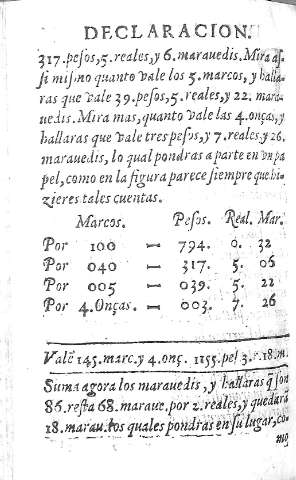 DECLARACION.
317. pesos, 5. reales, y 6. marauedis. Mira as-
si mismo quanto vale los 5. marcos, y halla-
ras que vale 39. pesos, 5. reales, y 22. mara-
uedis. Mira mas, quanto vale las 4. onças, y
hallaras que vale tres pesos, y 7. reales y 26.
marauedis, lo qual pondras a parte en vn pa
pel, como en la figura parece siempre que hi-
zieres tales cuentas.
Marcos. Pesos. Real. Mar.
Por 100 — 794. 0. 32
Por 040 — 317. 5. 06
Por 005 — 039. 5. 22
Por 4. Onças. — 003. 7. 26
Valẽ 145. marc. y 4. onç. 1155. pes 3. r. 18. m.
Suma agora los marauedis, y hallaras q̃ son
86. resta 68. maraue. por 2. reales, y quedarã
18. marau. los quales pondras en su lugar, co-
mo